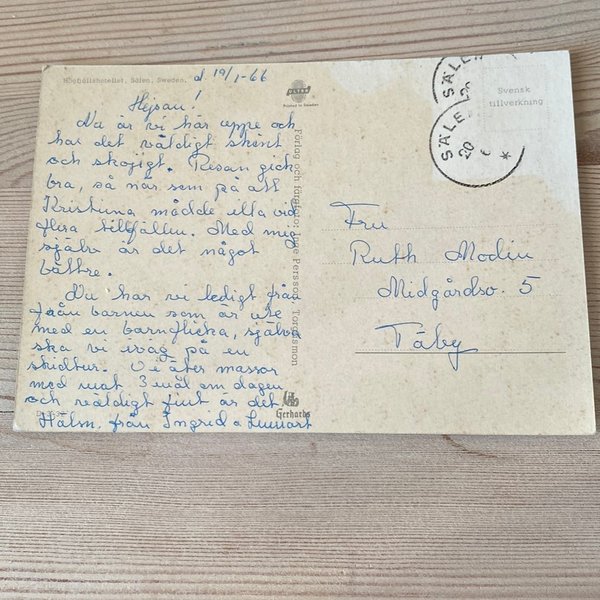 Högfjällshotellet, Sälen, Sweden.
d. 19/1-66
Hejsan!
Nu är vi här uppe och
har det väldigt skönt
och skojigt. Resan gick
bra, så när som på att
Kristiina mådde illa vid
flera tillfällen. Med mig
själv är det något
bättre.
Nu har vi ledigt från
från barnen som är ute
med en barnflicka, själva
ska vi iväg på en
skidtur. Vi äter massor
med mat 3 mål om dagen
och väldigt fint är det.
Hälsn. från Ingrid o Lennart
ULTRA
Printed in Sweden
Förlag och färgfoto: Persson, Torgåsmon
Gerhards
SÄLE
SÄLE
20
*
Svensk
tillverkning
Fru
Ruth Modin
Midgårdsv. 5
Täby